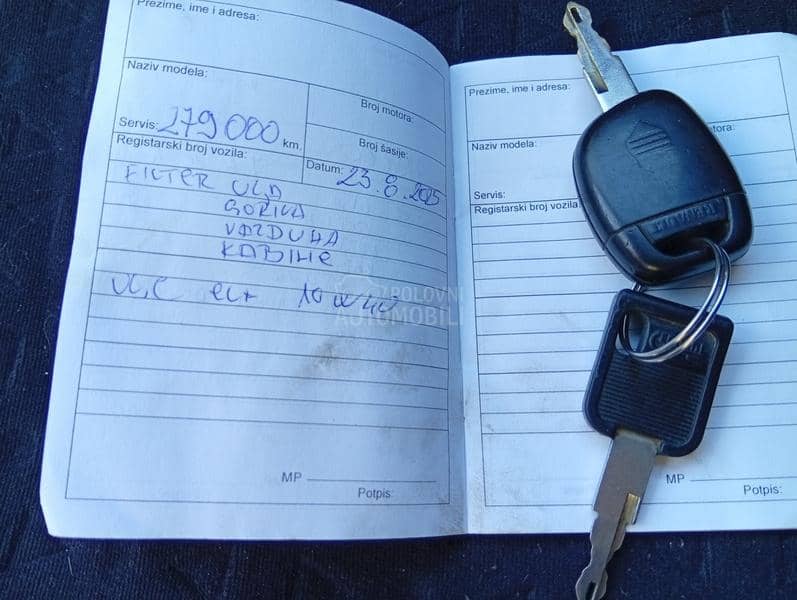 Prezime, ime i adresa:
Naziv modela:
Broj motora:
Servis: 279000 km.
Broj šasije:
Registarski broj vozila:
Datum: 23.8.2025
FILTER ULJA
GORIVA
VAZDUHA
KABINE
ULJE elf 10W40
MP
Potpis:
Prezime, ime i adresa:
Naziv modela:
Servis:
Registarski broj vozila
MP
Potpis:
POLOVNI
AUTOMOBILI